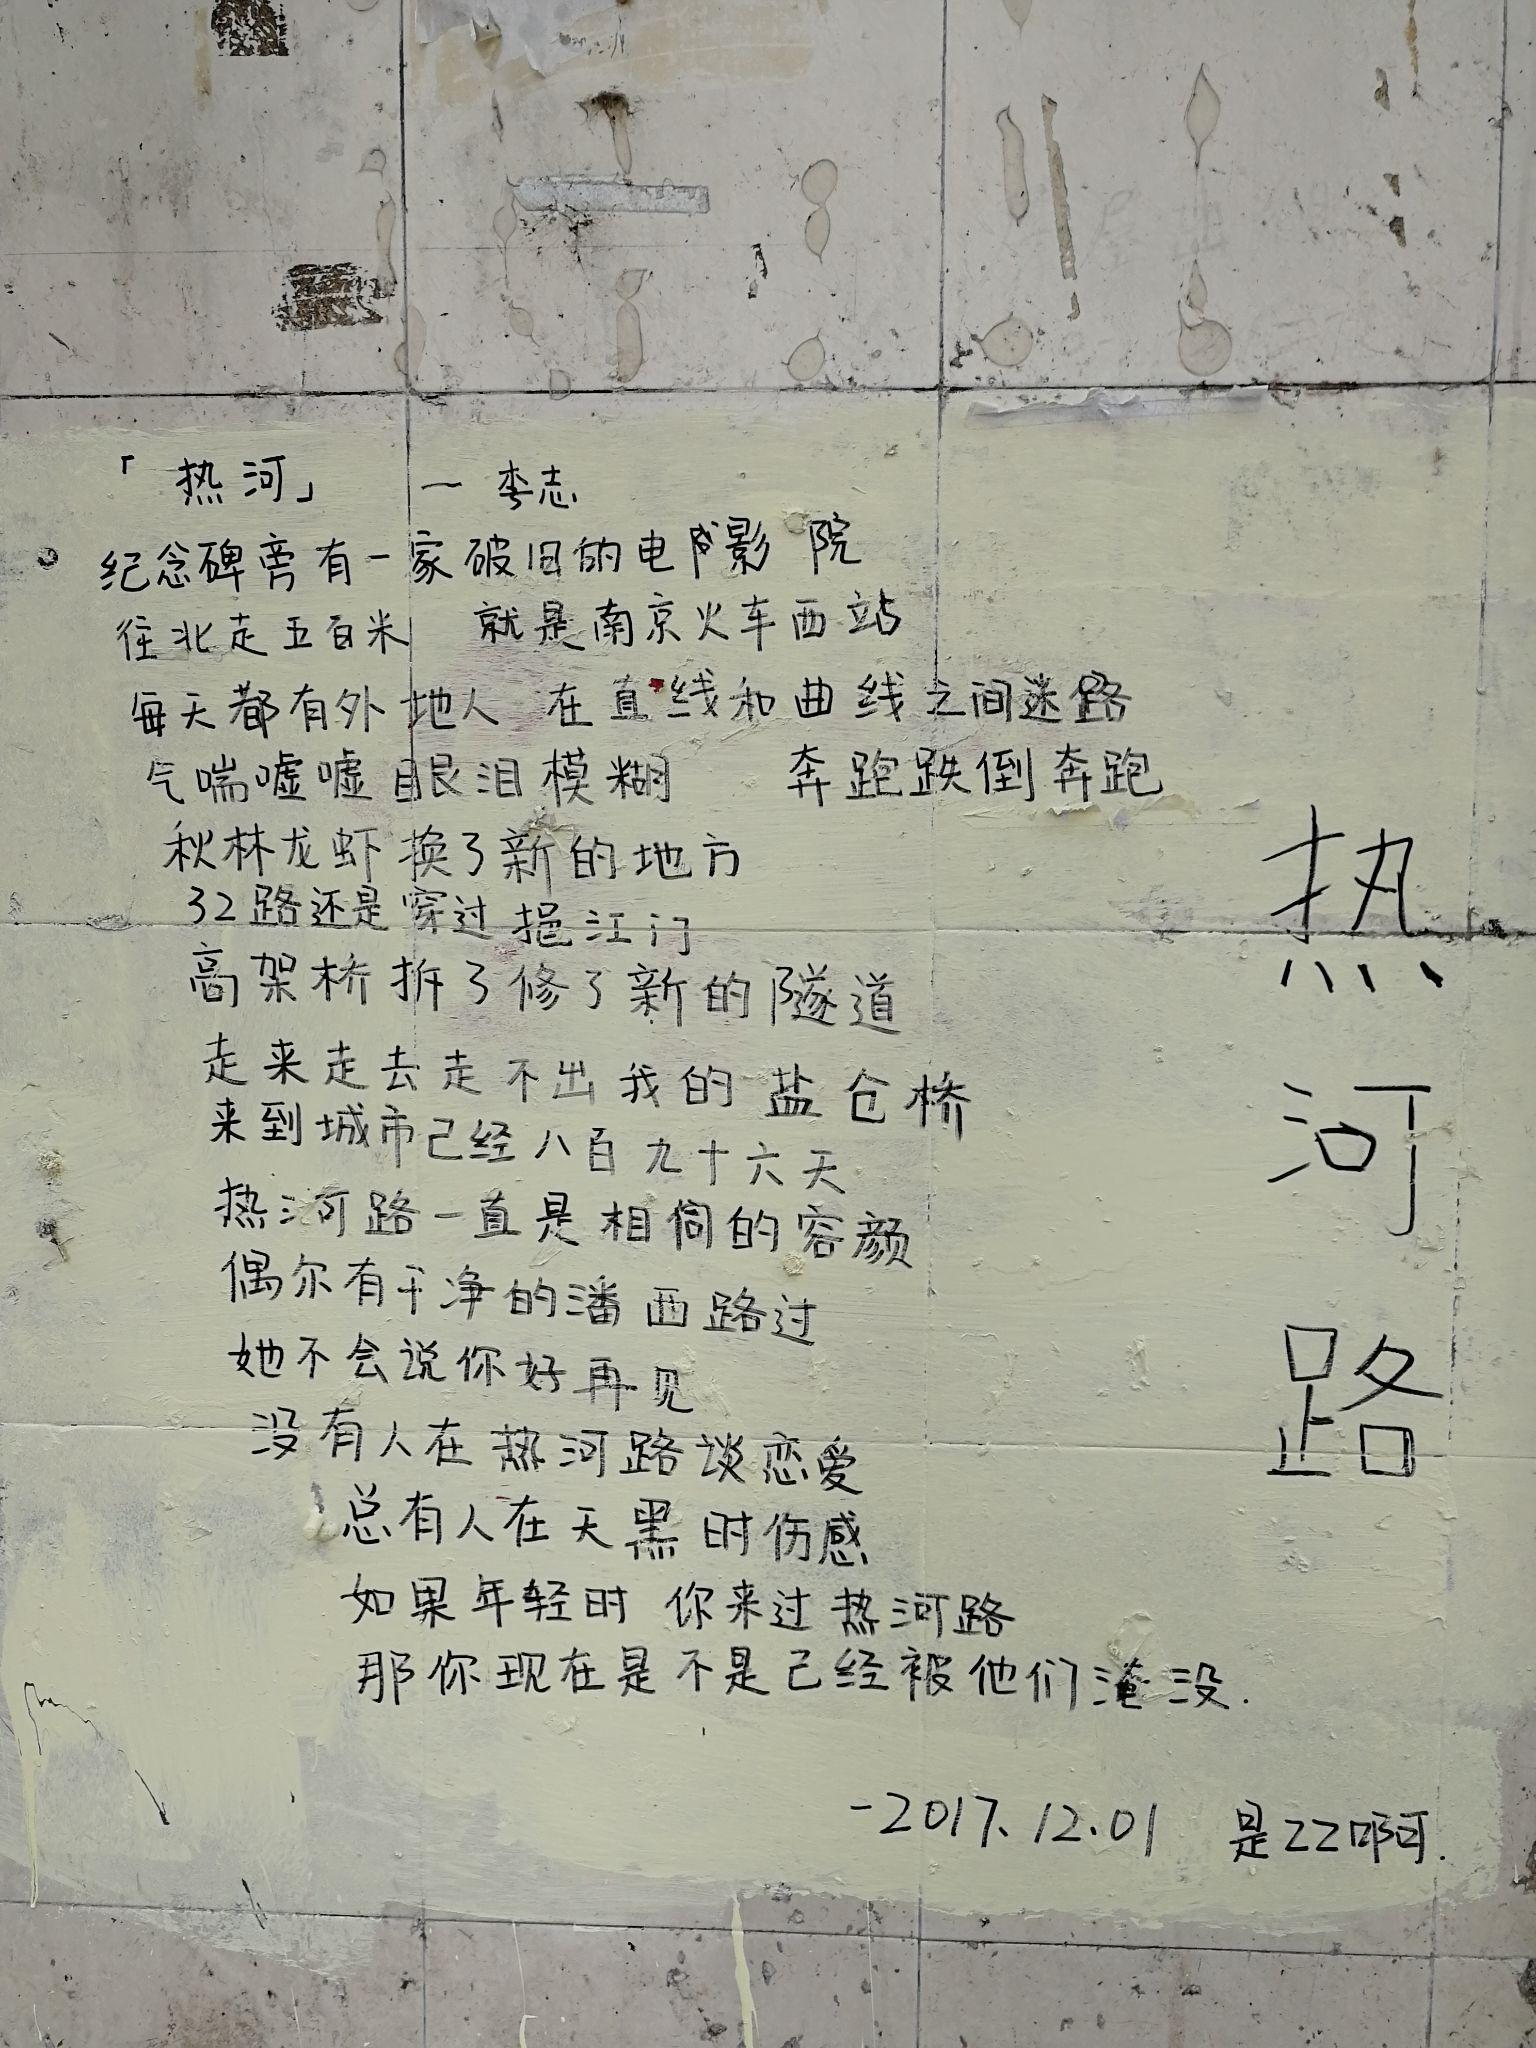 「热河」 — 李志
纪念碑旁有一家破旧的电影院
往北走五百米 就是南京火车西站
每天都有外地人 在直线和曲线之间迷路
气喘嘘嘘眼泪模糊 奔跑跌倒奔跑
秋林龙虾换了新的地方
32路还是穿过挹江门
高架桥拆了修了新的隧道
走来走去走不出我的盐仓桥
来到城市已经八百九十六天
热河路一直是相同的容颜
偶尔有干净的潘西路过
她不会说你好再见
没有人在热河路谈恋爱
总有人在天黑时伤感
如果年轻时 你来过热河路
那你现在是不是已经被他们淹没.
-2017.12.01 是ZZ啊.
热河路